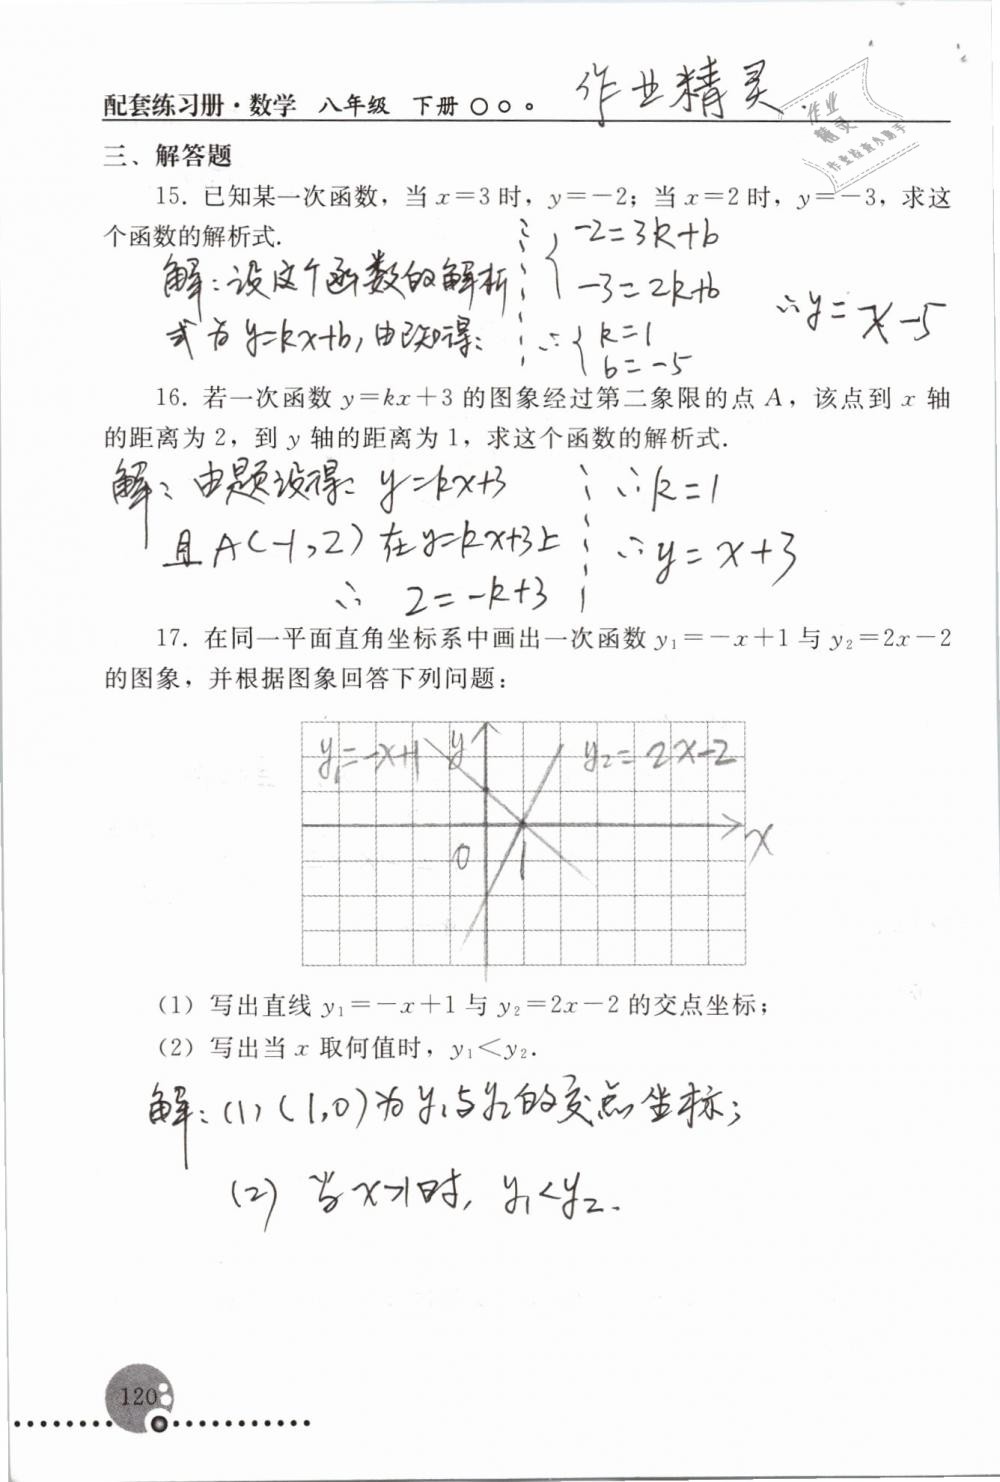 配套练习册·数学 八年级 下册 ○○。 作业精灵
作业
精灵
作业检查小助手
三、解答题
15. 已知某一次函数，当 x=3 时，y=-2；当 x=2 时，y=-3，求这
个函数的解析式.
解：设这个函数的解析
式为 y=kx+b，由已知得：
{ -2=3k+b
-3=2k+b
∴ { k=1
b=-5
∴y=x-5
16. 若一次函数 y=kx+3 的图象经过第二象限的点 A，该点到 x 轴
的距离为 2，到 y 轴的距离为 1，求这个函数的解析式.
解：由题设得：y=kx+3
且 A(-1,2) 在 y=kx+3上
∴ 2=-k+3
∴k=1
∴y=x+3
17. 在同一平面直角坐标系中画出一次函数 y₁=-x+1 与 y₂=2x-2
的图象，并根据图象回答下列问题：
y₁=-x+1 y y₂=2x-2
x
0 1
(1) 写出直线 y₁=-x+1 与 y₂=2x-2 的交点坐标；
(2) 写出当 x 取何值时，y₁<y₂.
解：(1) (1,0)为y₁与y₂的交点坐标；
(2) 当x>1时，y₁<y₂.
120